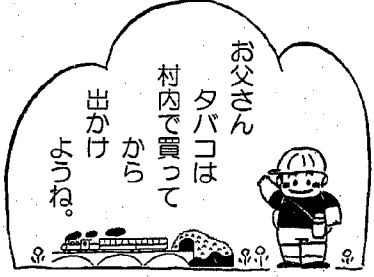 お父さん
タバコは
村内で買って
から
出かけ
ようね。